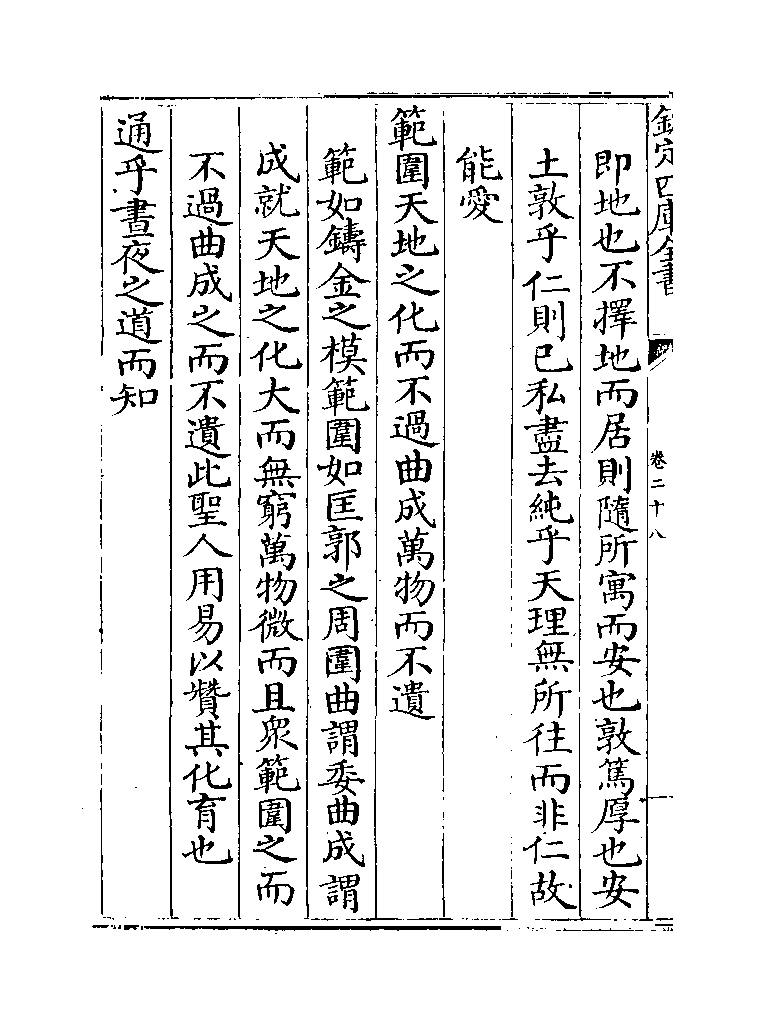 欽定四庫全書
卷二十八
即地也不擇地而居則隨所寓而安也敦篤厚也安
土敦乎仁則已私盡去純乎天理無所往而非仁故
能愛
範圍天地之化而不過曲成萬物而不遺
範如鑄金之模範圍如匡郭之周圍曲謂委曲成謂
成就天地之化大而無窮萬物微而且衆範圍之而
不過曲成之而不遺此聖人用易以贊其化育也
通乎晝夜之道而知